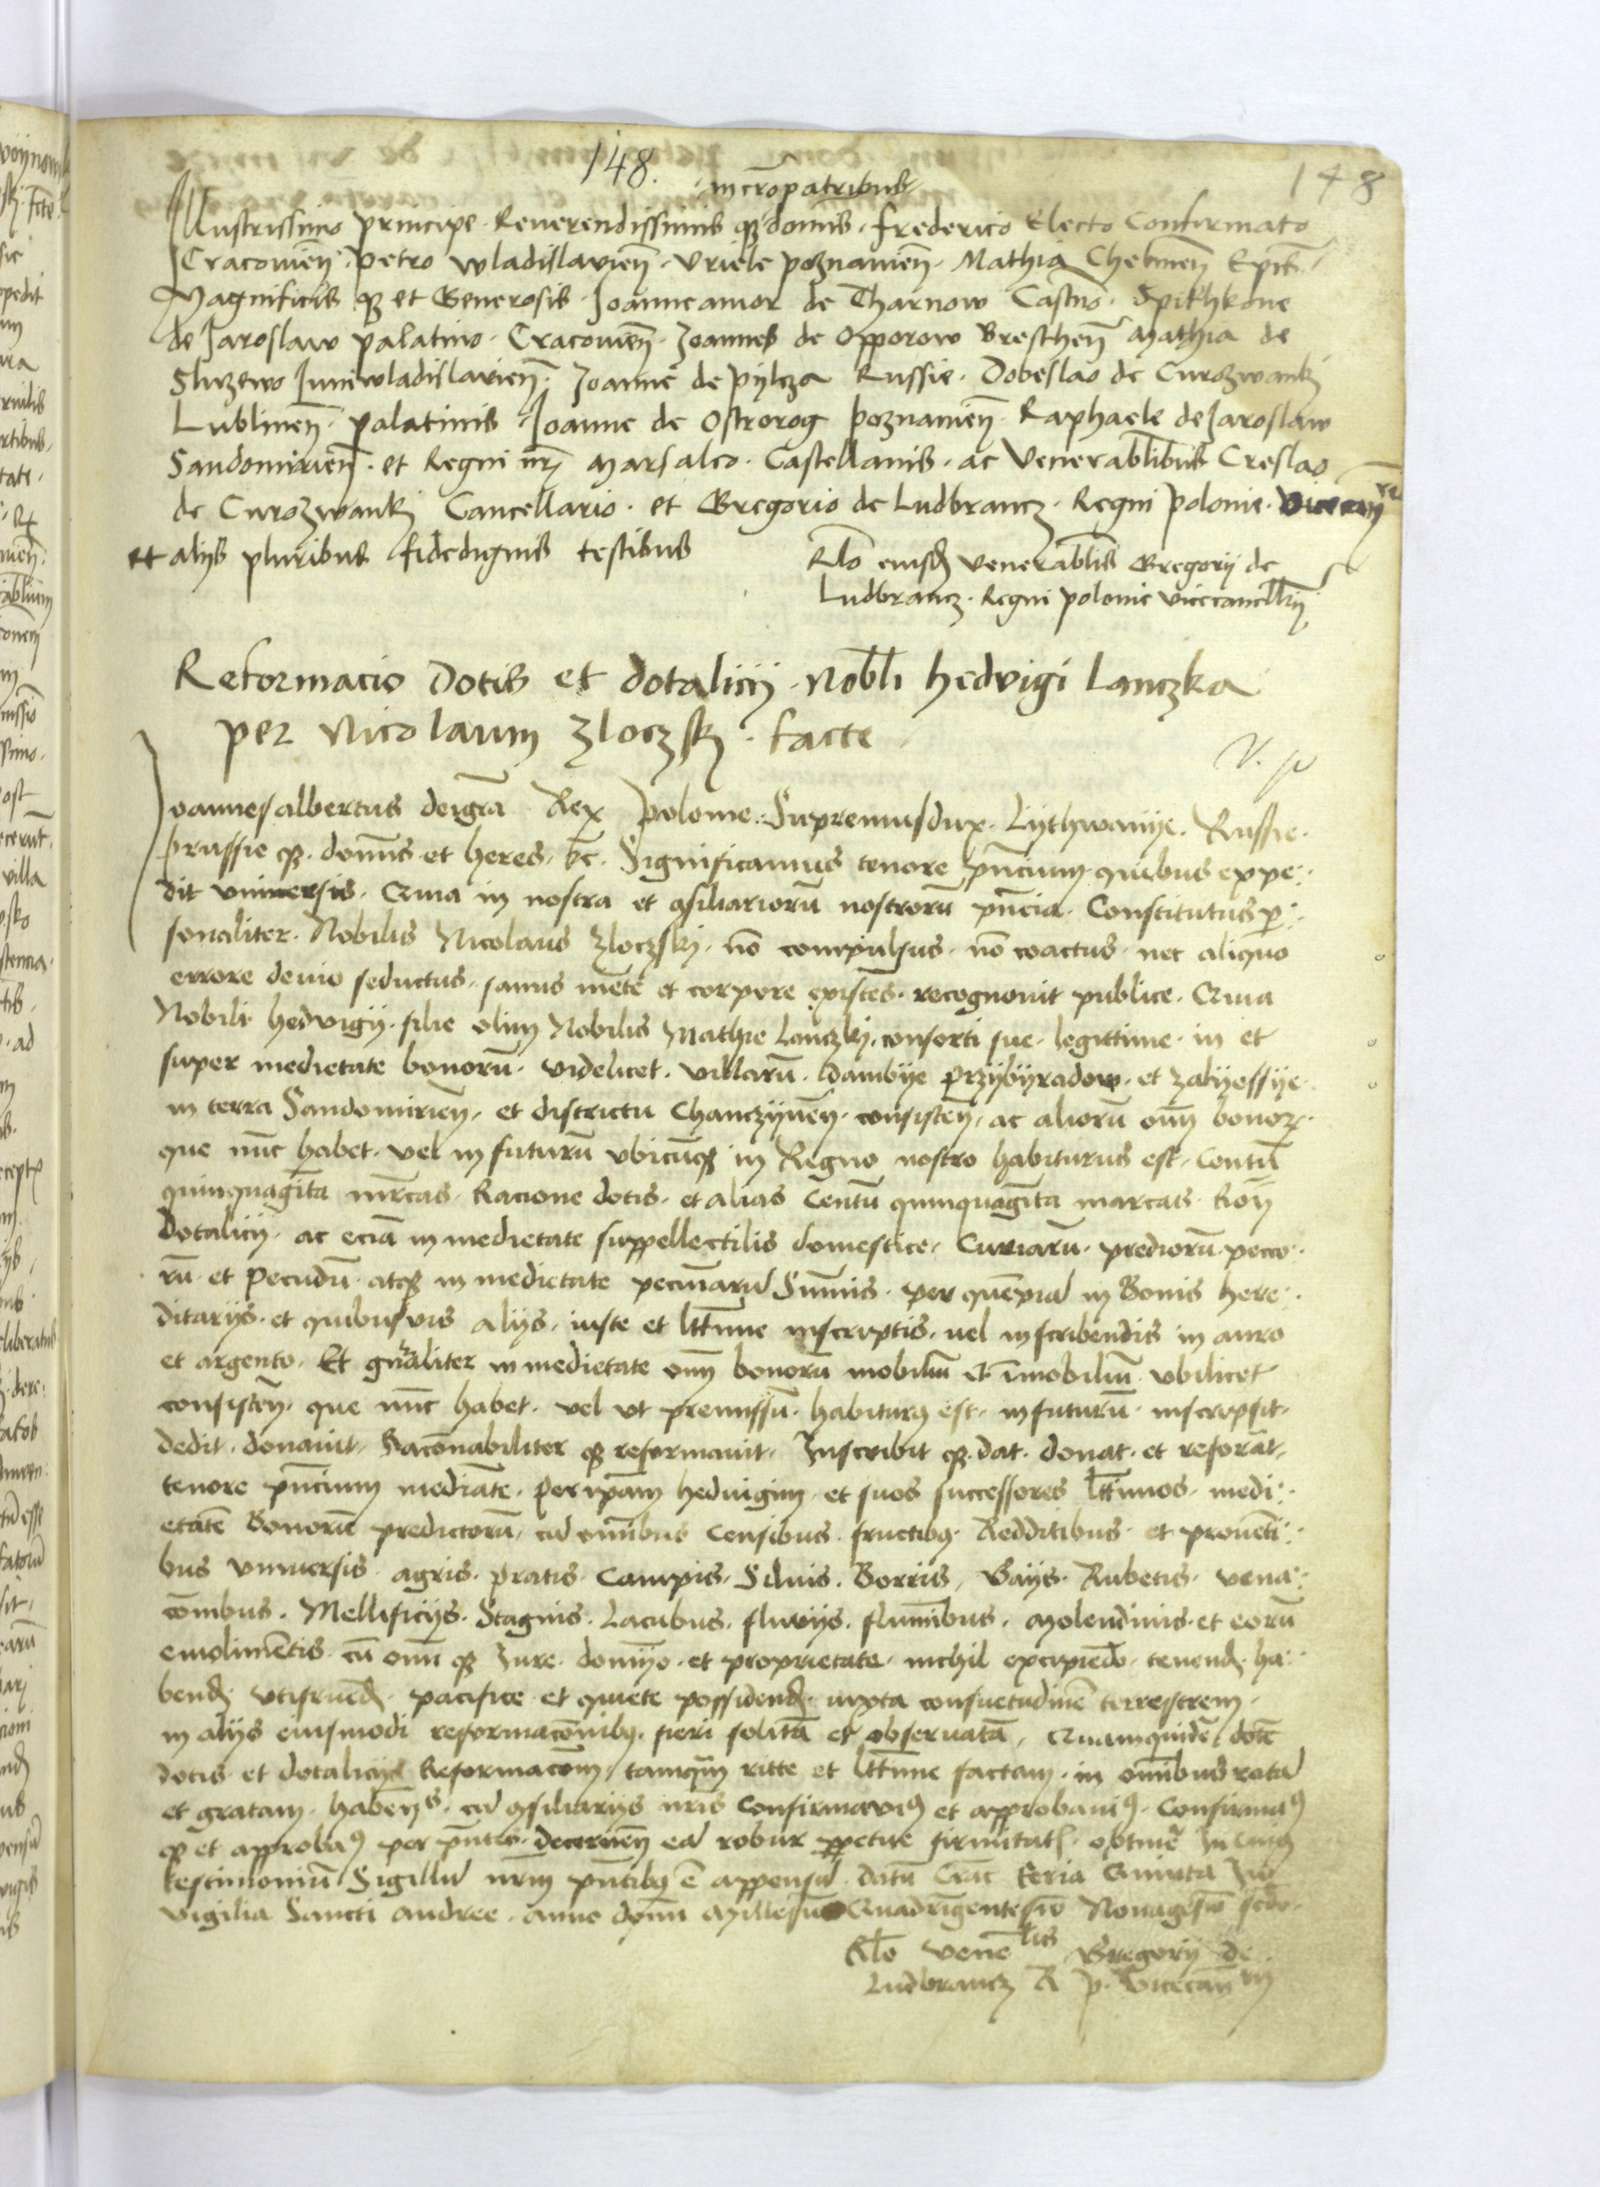 148.
148
in cro patribus
Illustrissimo principe Reverendissimis qz domis. Frederico Electo Confirmato
Cracovien. Petro Wladislavien. Uriele poznanien. Mathia Chelmen Epis.
Magnificis qz et Generosis. Joanne amor de Tharnow Castno. Spithkone
de Jaroslaw palatino. Cracovien. Joannes de Opporow Bresthen Mathia de
Sluzewo Juniwladislavien. Joanne de pylcza Russie. Dobeslao de Curozwanki
Lublinen. palatinis Joanne de Ostrorog poznanien. Raphaele de Jaroslaw
Sandomirien. et Regni nri Marsalco. Castellanis. ac Venerablibus Creslao
de Curozwanki Cancellario. et Gregorio de Ludbrancz. Regni polonie.
et alys pluribus fidedignis testibus
Rlo eiusd venerablis Gregorii de
Ludbrancz. Regni polonie vicecancllrii
Reformacio Dotis et dotalicii. Nobli hedvigi Lanczka
per Nicolaum Zloczsky. facte.
Joannes albertus dei gra Rex polonie. Supremus dux. Lythwanye. Russie.
prussie qz. domus et heres. &c. Significamus tenore pncium quibus expe:
dit universis. Quia in nostra et csiliariorum nostrorum pncia. Constitutus p:
sonaliter. Nobilis Nicolaus Zloczski. no compulsus. no coactus. nec aliquo
errore devio seductus. sanus mente et corpore existes. recognovit publice. Quia
Nobili hedvigii. filie olim Nobilis Mathie Lanczki. consorti sue. legittime. in et
super medietate bonoru. videlicet. villaru. Dambye przybyradow. et zalyessye.
in terra Sandomirien. et districtu Chanczynen. consisten. ac alioru omn bonor.
que nuc habet. vel in futuru ubicuqz in Regno nostro habiturus est. Centu
quinquaginta mrcas. Racione dotis. et alias Centu quinquaginta marcas. Ron
Dotalicii. ac ecia in medietate suppellectilis domestice. Curiaru. predioru. peco:
ru. et Pecudu. atqz in medietate pecuniaru Summis. per quempia in Bonis here:
ditarys. et quibusvis alys. iuste et lttime inscriptis. vel inscribendis in auro
et argento. Et gnraliter in medietate omn bonoru mobiliu et imobiliu ubilicet
consisten. que nuc habet. vel ut premissu. habiturus est. in futuru. inscripsit.
dedit. donavit. Raconabiliter qz reformavit. Inscribit qz. dat. donat. et reforat.
tenore pncium mediate. per ipam hedvigim. et suos successores lttimos. medi:
etate Bonoru predictoru. cu omibus Censibus. fructibus. Redditibus. et proventi:
bus universis. agris. pratis. Campis. Silvis. Borris. Gays. Rubetis. vena:
conibus. Mellificiys. Stagnis. Lacubus. fluvys. fluminibus. Molendinis. et eoru
emolimentis. cu omni qz Jure. dominyo. et proprietate. nichil excipiedo. tenend. ha:
bend. utifruend. pacifice et quiete possidend. iuxta consuetudine terrestrem.
in alys eiusmodi reformaconibus. fieri solita et observata. Quamquide dote
dotis et dotalicii Reformacom. tamqm ritte et lttime factam. in omibus rata
et gratam. habens. cu csiliarys nris Confirmavimus et approbavimus. Confirmamus
qz et approbamus per pntes. decernen ea robur ppetue firmitatis. obtinere In cuius
testimoniu Sigillu nrm pntibus e appensu. Datu Crac feria Quinta In
vigilia Sancti andree. anno domi Millesimo Quadringentesimo Nonagesimo scdo.
Rlo Venelis Gregorii de
Ludbrancz R p. Vicecan